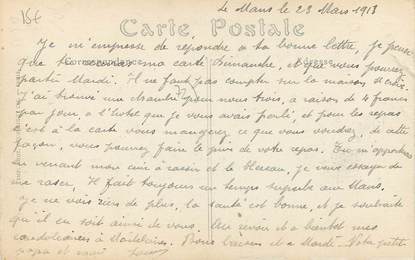 15f
Le Mans le 23 Mars 1913
Carte Postale
Correspondance
Adresse
Je m'empresse de répondre a ta bonne lettre, je pense
que ma carte Dimanche, et que vous pourrez
partir Mardi. Il ne faut pas compter sur la maison
J'ai trouvé une chambre pour nous trois, a raison de 4 francs
par jour, a l'hotel que je vous avais parlé, et pour les repas
c'est à la carte vous mangerez ce que vous voudrez, de cette
façon, vous pourrez faire le prix de votre repas. Tu m'apporteras
en venant mon cuir à rasoir et le
me raser, Il fait toujours un temps superbe aux Mans.
je ne vois rien de plus, la santé est bonne, et je souhaite
qu'il en soit ainsi de vous. Au revoir et a bientot mes
Bons baisers et a Mardi. Votre petit
papa et mari